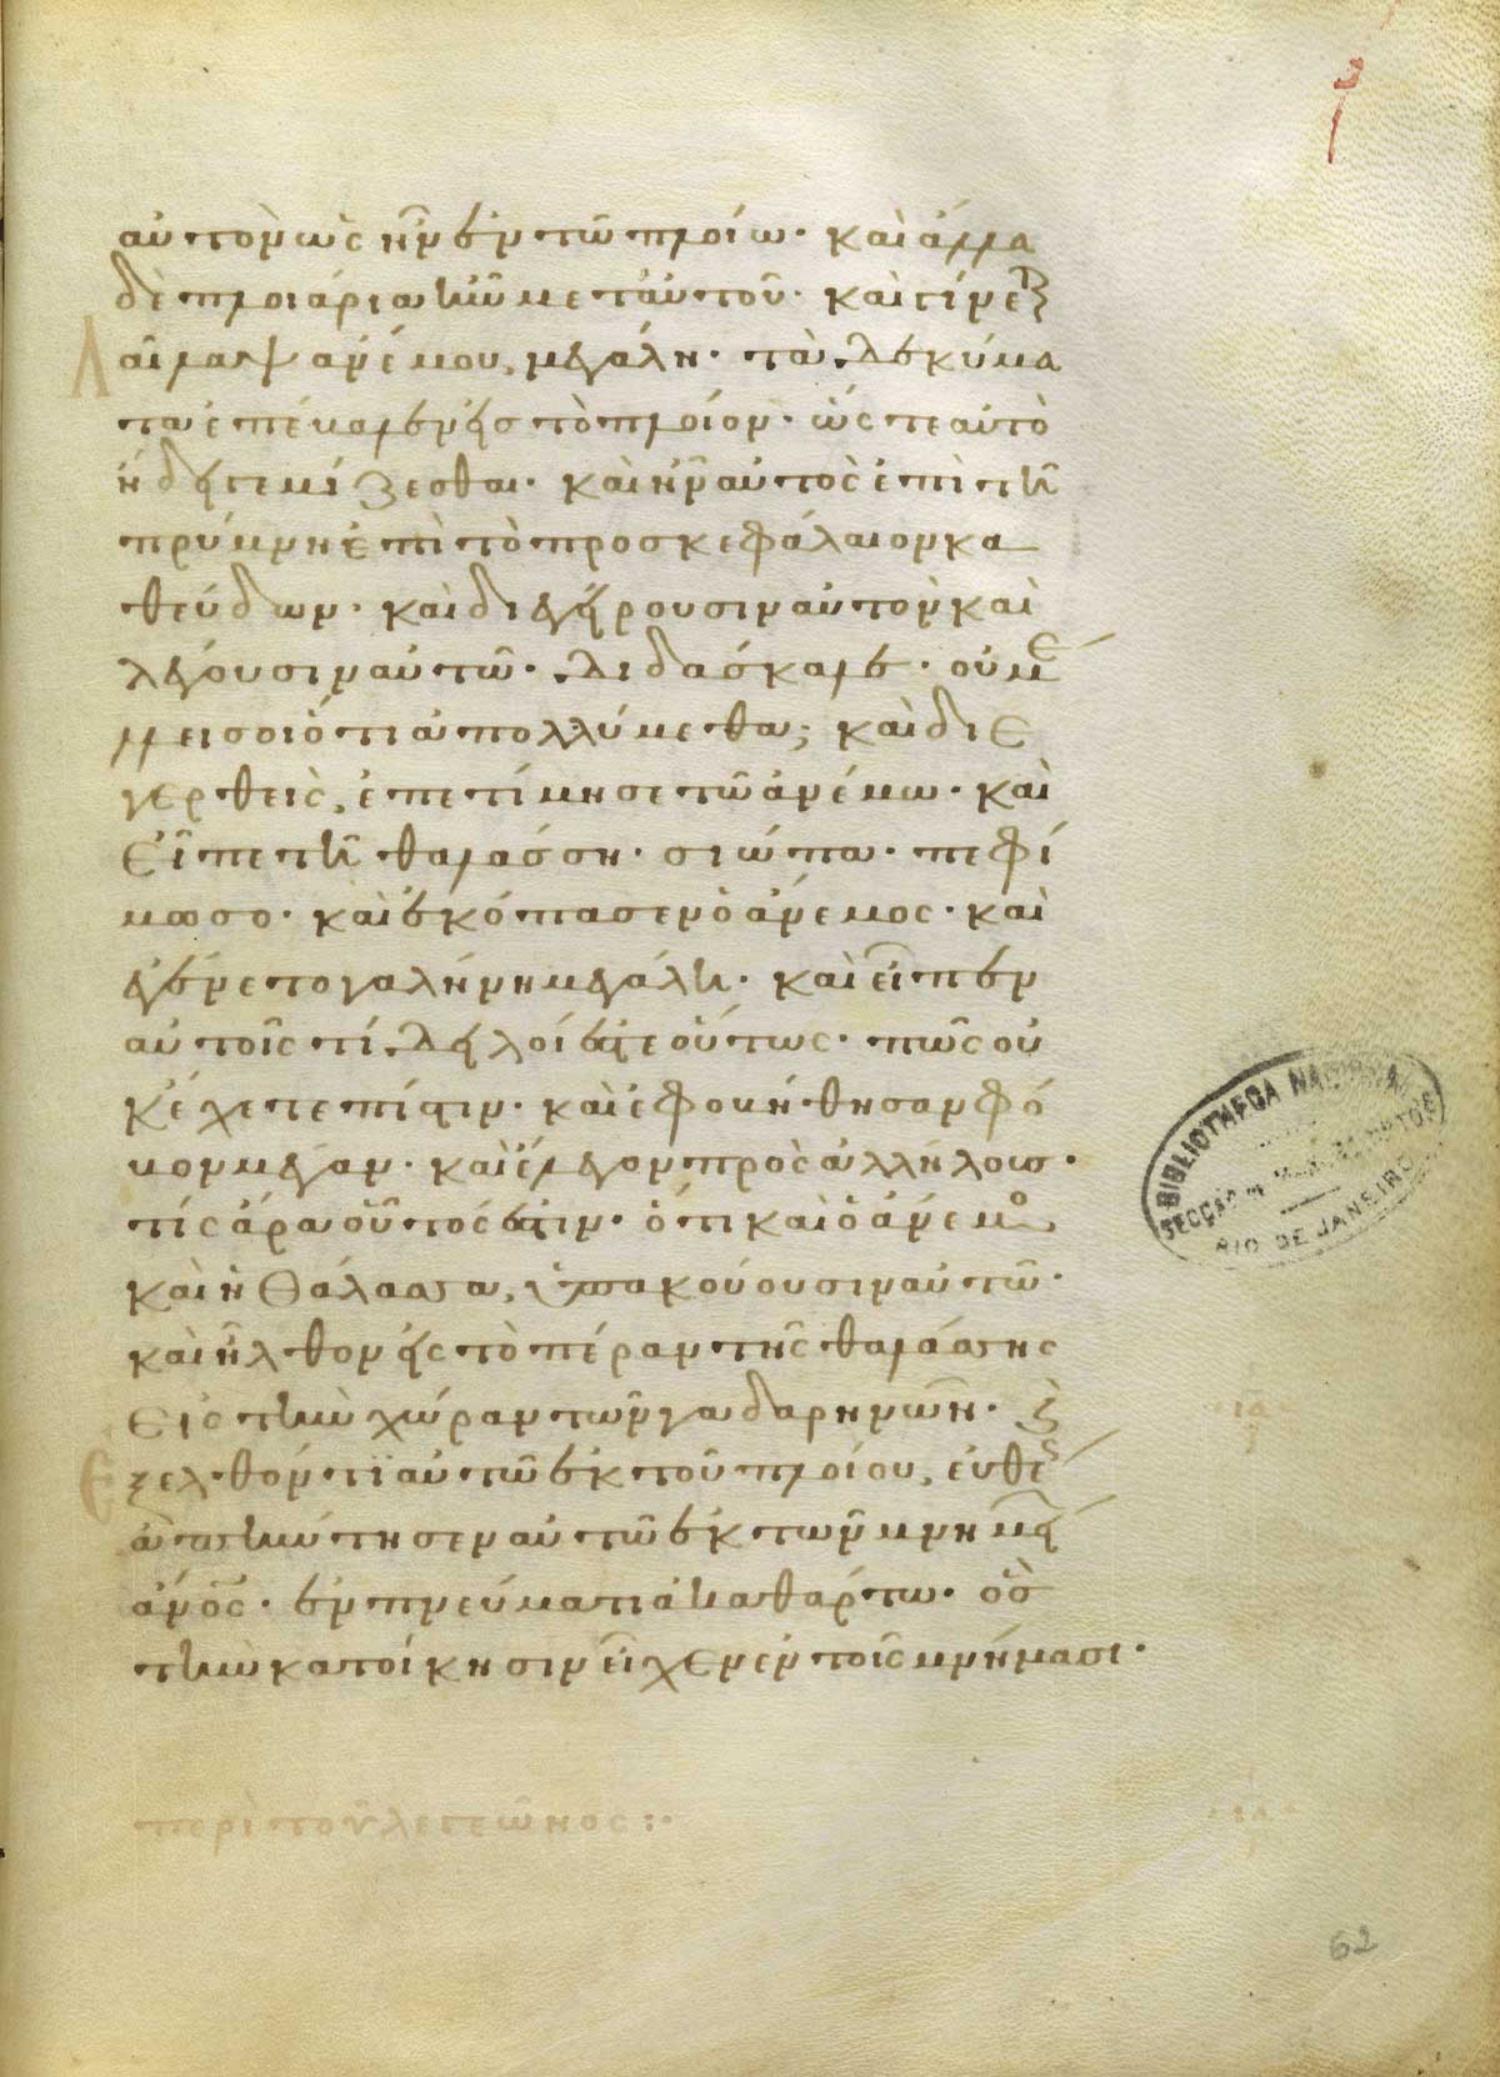 αὐτὸν ὡς ἦν ἐν τῶ πλοίω· καὶ ἄλλα
δὲ πλοιάρια ἦν μετ' αὐτοῦ· καὶ γίνετ
λαῖλαψ ἀνέμου, μεγάλη· τὰ δὲ κύμα
τα ἐπέβαλλεν εἰς τὸ πλοίον· ὥστε αὐτὸ
ἤδη γεμίζεσθαι· καὶ ἦν αὐτὸς ἐπὶ τῆ
πρύμνη ἐπὶ τὸ προσκεφάλαιον κα
θεύδων· καὶ διεγείρουσιν αὐτὸν καὶ
λέγουσιν αὐτῶ· διδάσκαλε· οὐ μέ
λει σοι ὅτι ἀπολλύμεθα; καὶ διε
γερθεὶς, ἐπετίμησε τῶ ἀνέμω· καὶ
εἶπε τῆ θαλάσση· σιώπα· πεφί
μωσο· καὶ ἐκόπασεν ὁ ἄνεμος· καὶ
ἐγένετο γαλήνη μεγάλη· καὶ εἶπεν
αὐτοῖς τί δειλοί ἐστε οὕτως· πῶς οὐ
κ ἔχετε πίστιν· καὶ ἐφοβήθησαν φό
βον μέγαν· καὶ ἔλεγον πρὸς ἀλλήλους·
τίς ἄρα οὗτός ἐστιν· ὅτι καὶ ὁ ἄνεμος
καὶ ἡ θάλασσα, ὑπακούουσιν αὐτῶ·
καὶ ἦλθον εἰς τὸ πέραν τῆς θαλάσσης
εἰς τὴν χώραν τῶν γαδαρηνῶν· ϗ
ἐξελθόντι αὐτῶ ἐκ τοῦ πλοίου, εὐθὲς
ἀπήντησεν αὐτῶ ἐκ τῶν μνημεί
ἀνος· ἐν πνεύματι ἀκαθάρτω· ὃς
τὴν κατοίκησιν εἶχεν ἐν τοῖς μνήμασι·
περὶ τοῦ λεγεῶνος:·
BIBLIOTHECA NACIONAL
RIO DE JANEIRO
62